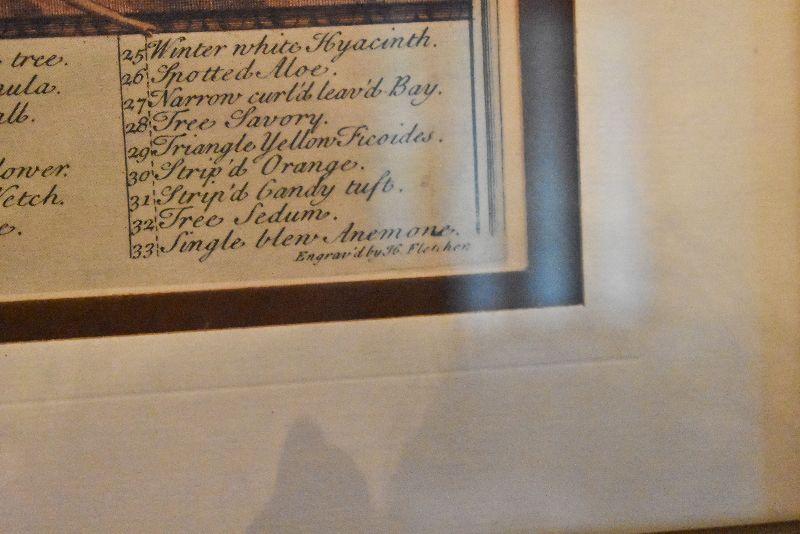 tree.
nula.
all.
lower.
Vetch.
e.
25 Winter white Hyacinth.
26 Spotted Aloe.
27 Narrow curl'd leav'd Bay.
28 Tree Savory.
29 Triangle Yellow Ficoides.
30 Strip'd Orange.
31 Strip'd Candy tuft.
32 Tree Sedum.
33 Single blew Anemone.
Engrav'd by H. Fletcher